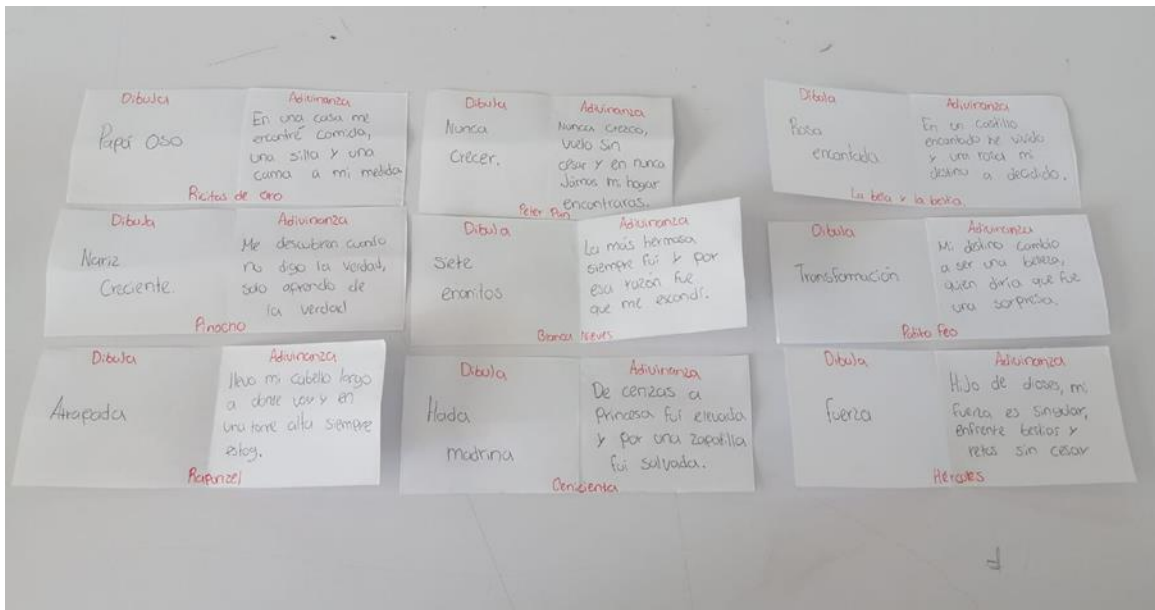 Dibuja
Papá Oso
Adivinanza
En una casa me
encontré comida,
una silla y una
cama a mi medida
Ricitos de oro
Dibuja
Nunca
Crecer.
Adivinanza
Nunca crezco,
vuelo sin
césar y en nunca
Jámas mi hogar
encontraras.
Peter Pan
Dibuja
Rosa
encantada
Adivinanza
En un castillo
encantado he vivido
y una rosa mi
destino a decidido.
La bella y la bestia
Dibuja
Nariz
Creciente
Adivinanza
Me descubren cuando
no digo la verdad,
solo aprendo de
la verdad
Pinocho
Dibuja
Siete
enanitos
Adivinanza
La más hermosa
siempre fui y por
esa razón fue
que me escondí.
Blanca Nieves
Dibuja
Transformación
Adivinanza
Mi destino cambio
a ser una belleza,
quien diría que fue
una sorpresa.
Patito Feo
Dibuja
Atrapada
Adivinanza
llevo mi cabello largo
a donde voy y en
una torre alta siempre
estoy.
Rapunzel
Dibuja
Hada
madrina
Adivinanza
De cenizas a
Princesa fui elevada
y por una zapatilla
fui salvada.
Cenicienta
Dibuja
fuerza
Adivinanza
Hijo de dioses, mi
fuerza es singular,
enfrente bestias y
retos sin césar
Hércules